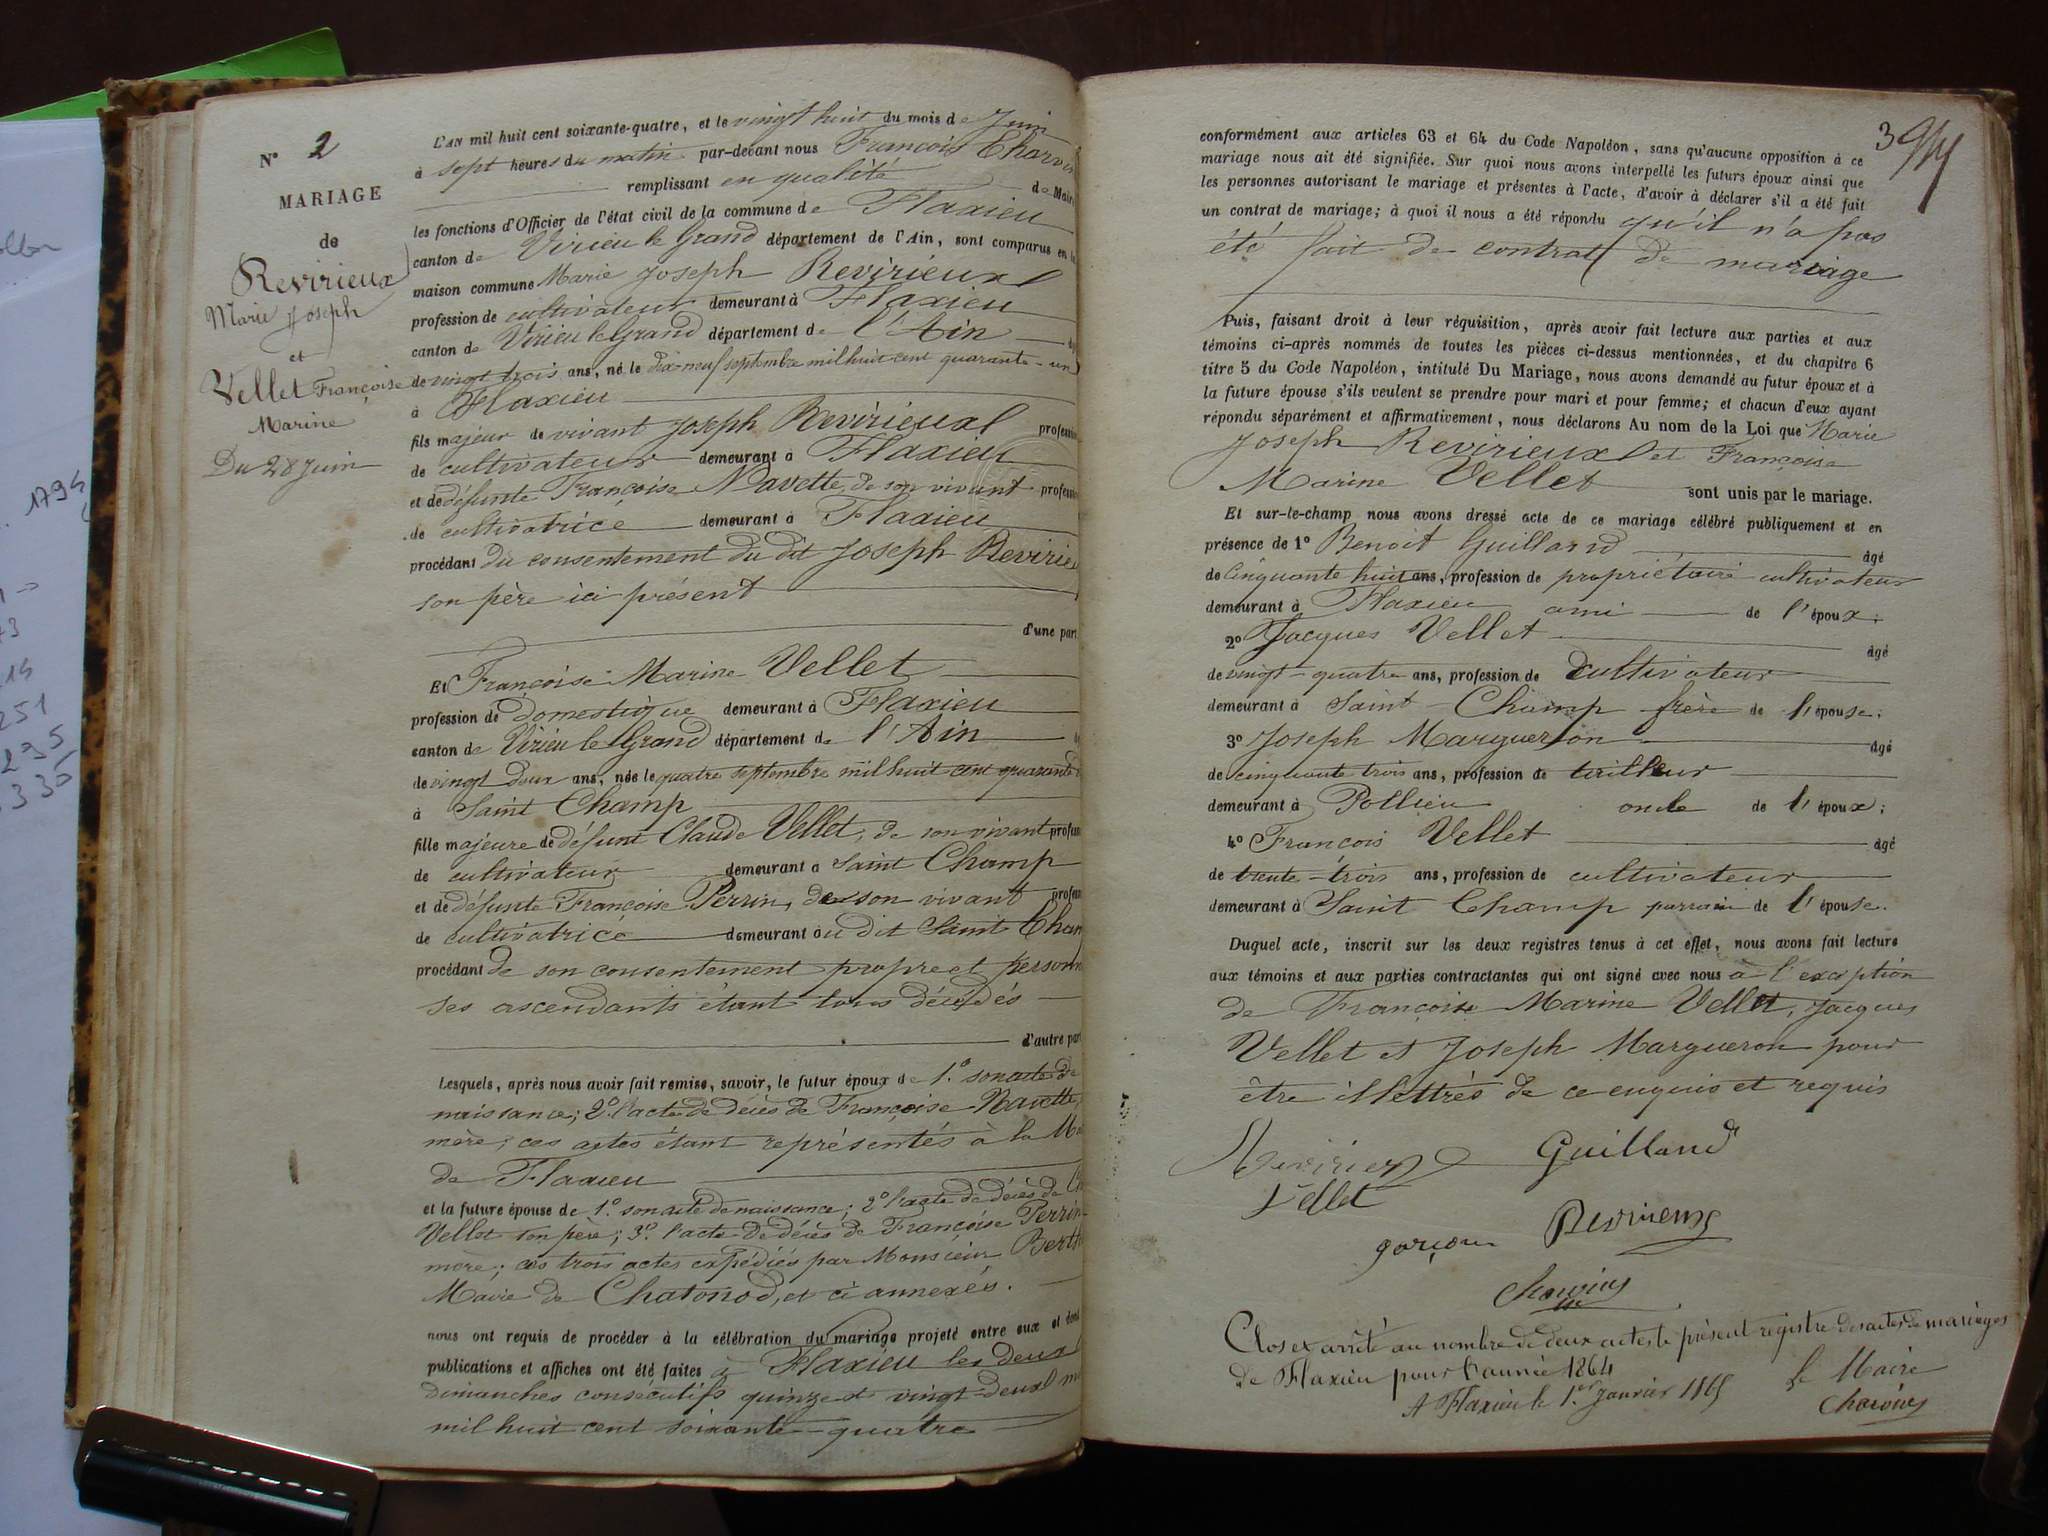 N° 2
MARIAGE
de
Revirieux
Marie Joseph
et
Vellet Françoise
Marine
Du 28 Juin
L'AN mil huit cent soixante-quatre, et le vingt huit du mois de Juin
à sept heures du matin par-devant nous François Charvin
remplissant en qualité de Maire
les fonctions d'Officier de l'état civil de la commune de Flaxieu
canton de Virieu le Grand département de l'Ain, sont comparus en la
maison commune Marie Joseph Revirieux
profession de cultivateur demeurant à Flaxieu
canton de Virieu le Grand département de l'Ain
de vingt trois ans, né le dix-neuf septembre mil huit cent quarante-un
à Flaxieu
fils majeur de vivant Joseph Revirieux profession
de cultivateur demeurant à Flaxieu
et de défunte Françoise Navette, de son vivant profession
de cultivatrice demeurant à Flaxieu
procédant du consentement du dit Joseph Revirieu
son père ici présent
d'une part
Et Françoise Marine Vellet
profession de domestique demeurant à Flaxieu
canton de Virieu le Grand département de l'Ain
de vingt deux ans, née le quatre septembre mil huit cent quarante
à Saint Champ
fille majeure de défunt Claude Vellet, de son vivant profess
de cultivateur demeurant à Saint Champ
et de défunte Françoise Perrin, de son vivant profess
de cultivatrice demeurant au dit Saint Cham
procédant de son consentement propre et personn
ses ascendants étant tous décédés
d'autre part
Lesquels, après nous avoir fait remise, savoir, le futur époux de 1.° son acte de
naissance; 2.° l'acte de décès de Françoise Navette,
mère; ces actes étant représentés à la Ma
de Flaxieu
et la future épouse de 1.° son acte de naissance; 2° l'acte de décès de Cl
Vellet son père; 3.° l'acte de décès de Françoise Perrin
mère; ces trois actes expédiés par Monsieur Berth
Maire de Chatonod, et ci annexés.
nous ont requis de procéder à la célébration du mariage projeté entre eux et dont
publications et affiches ont été faites à Flaxieu les deux
dimanches consécutifs quinze et vingt-deux m
mil huit cent soixante-quatre
3
conformément aux articles 63 et 64 du Code Napoléon, sans qu'aucune opposition à ce
mariage nous ait été signifiée. Sur quoi nous avons interpellé les futurs époux ainsi que
les personnes autorisant le mariage et présentes à l'acte, d'avoir à déclarer s'il a été fait
un contrat de mariage; à quoi il nous a été répondu qu'il n'a pas
été fait de contrat de mariage
Puis, faisant droit à leur réquisition, après avoir fait lecture aux parties et aux
témoins ci-après nommés de toutes les pièces ci-dessus mentionnées, et du chapitre 6
titre 5 du Code Napoléon, intitulé Du Mariage, nous avons demandé au futur époux et à
la future épouse s'ils veulent se prendre pour mari et pour femme; et chacun d'eux ayant
répondu séparément et affirmativement, nous déclarons Au nom de la Loi que Marie
Joseph Revirieux et Françoise
Marine Vellet sont unis par le mariage.
Et sur-le-champ nous avons dressé acte de ce mariage célébré publiquement et en
présence de 1° Benoit Guilland âgé
de cinquante huit ans, profession de propriétaire cultivateur
demeurant à Flaxieu ami de l'époux;
2° Jacques Vellet âgé
de vingt-quatre ans, profession de cultivateur
demeurant à Saint-Champ frère de l'épouse;
3° Joseph Margueron âgé
de cinquante trois ans, profession de tailleur
demeurant à Pollieu oncle de l'époux;
4° François Vellet âgé
de trente-trois ans, profession de cultivateur
demeurant à Saint Champ parrain de l'épouse.
Duquel acte, inscrit sur les deux registres tenus à cet effet, nous avons fait lecture
aux témoins et aux parties contractantes qui ont signé avec nous à l'exception
de Françoise Marine Vellet, Jacques
Vellet et Joseph Margueron pour
être illettrés de ce enquis et requis
Revirieux Guilland
Vellet
garçon Revirieux
Charvin
Clos et arrêté au nombre de deux actes le présent registre des actes de mariages
de Flaxieu pour l'année 1864
A Flaxieu le 1.er Janvier 1865 Le Maire
Charvin
1794
251
295